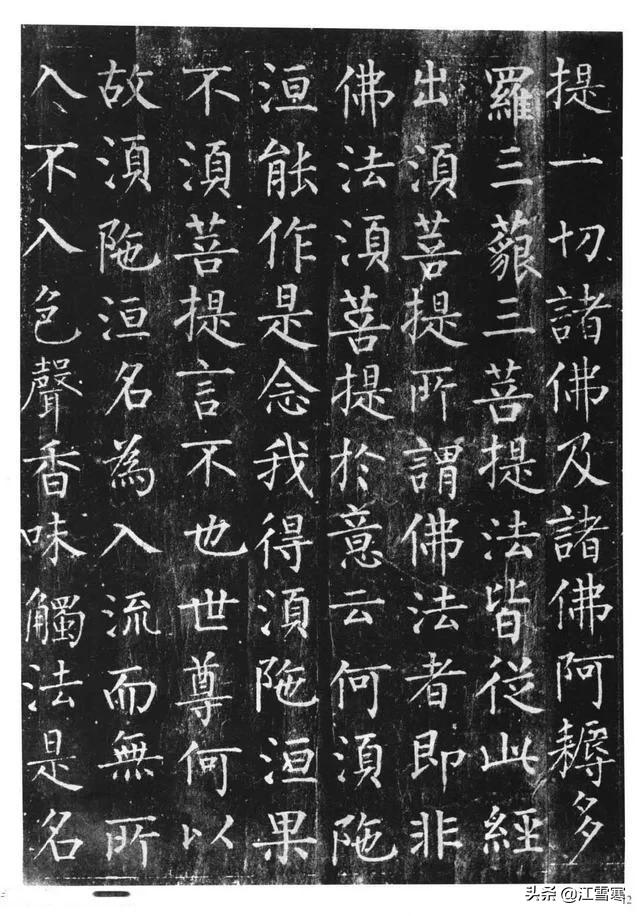 提一切諸佛及諸佛阿耨多
羅三藐三菩提法皆從此經
出湏菩提所謂佛法者即非
佛法湏菩提於意云何湏陁
洹能作是念我得湏陁洹果
不湏菩提言不也世尊何以
故湏陁洹名為入流而無所
入不入色聲香味觸法是名
头条 @江雪寒
12